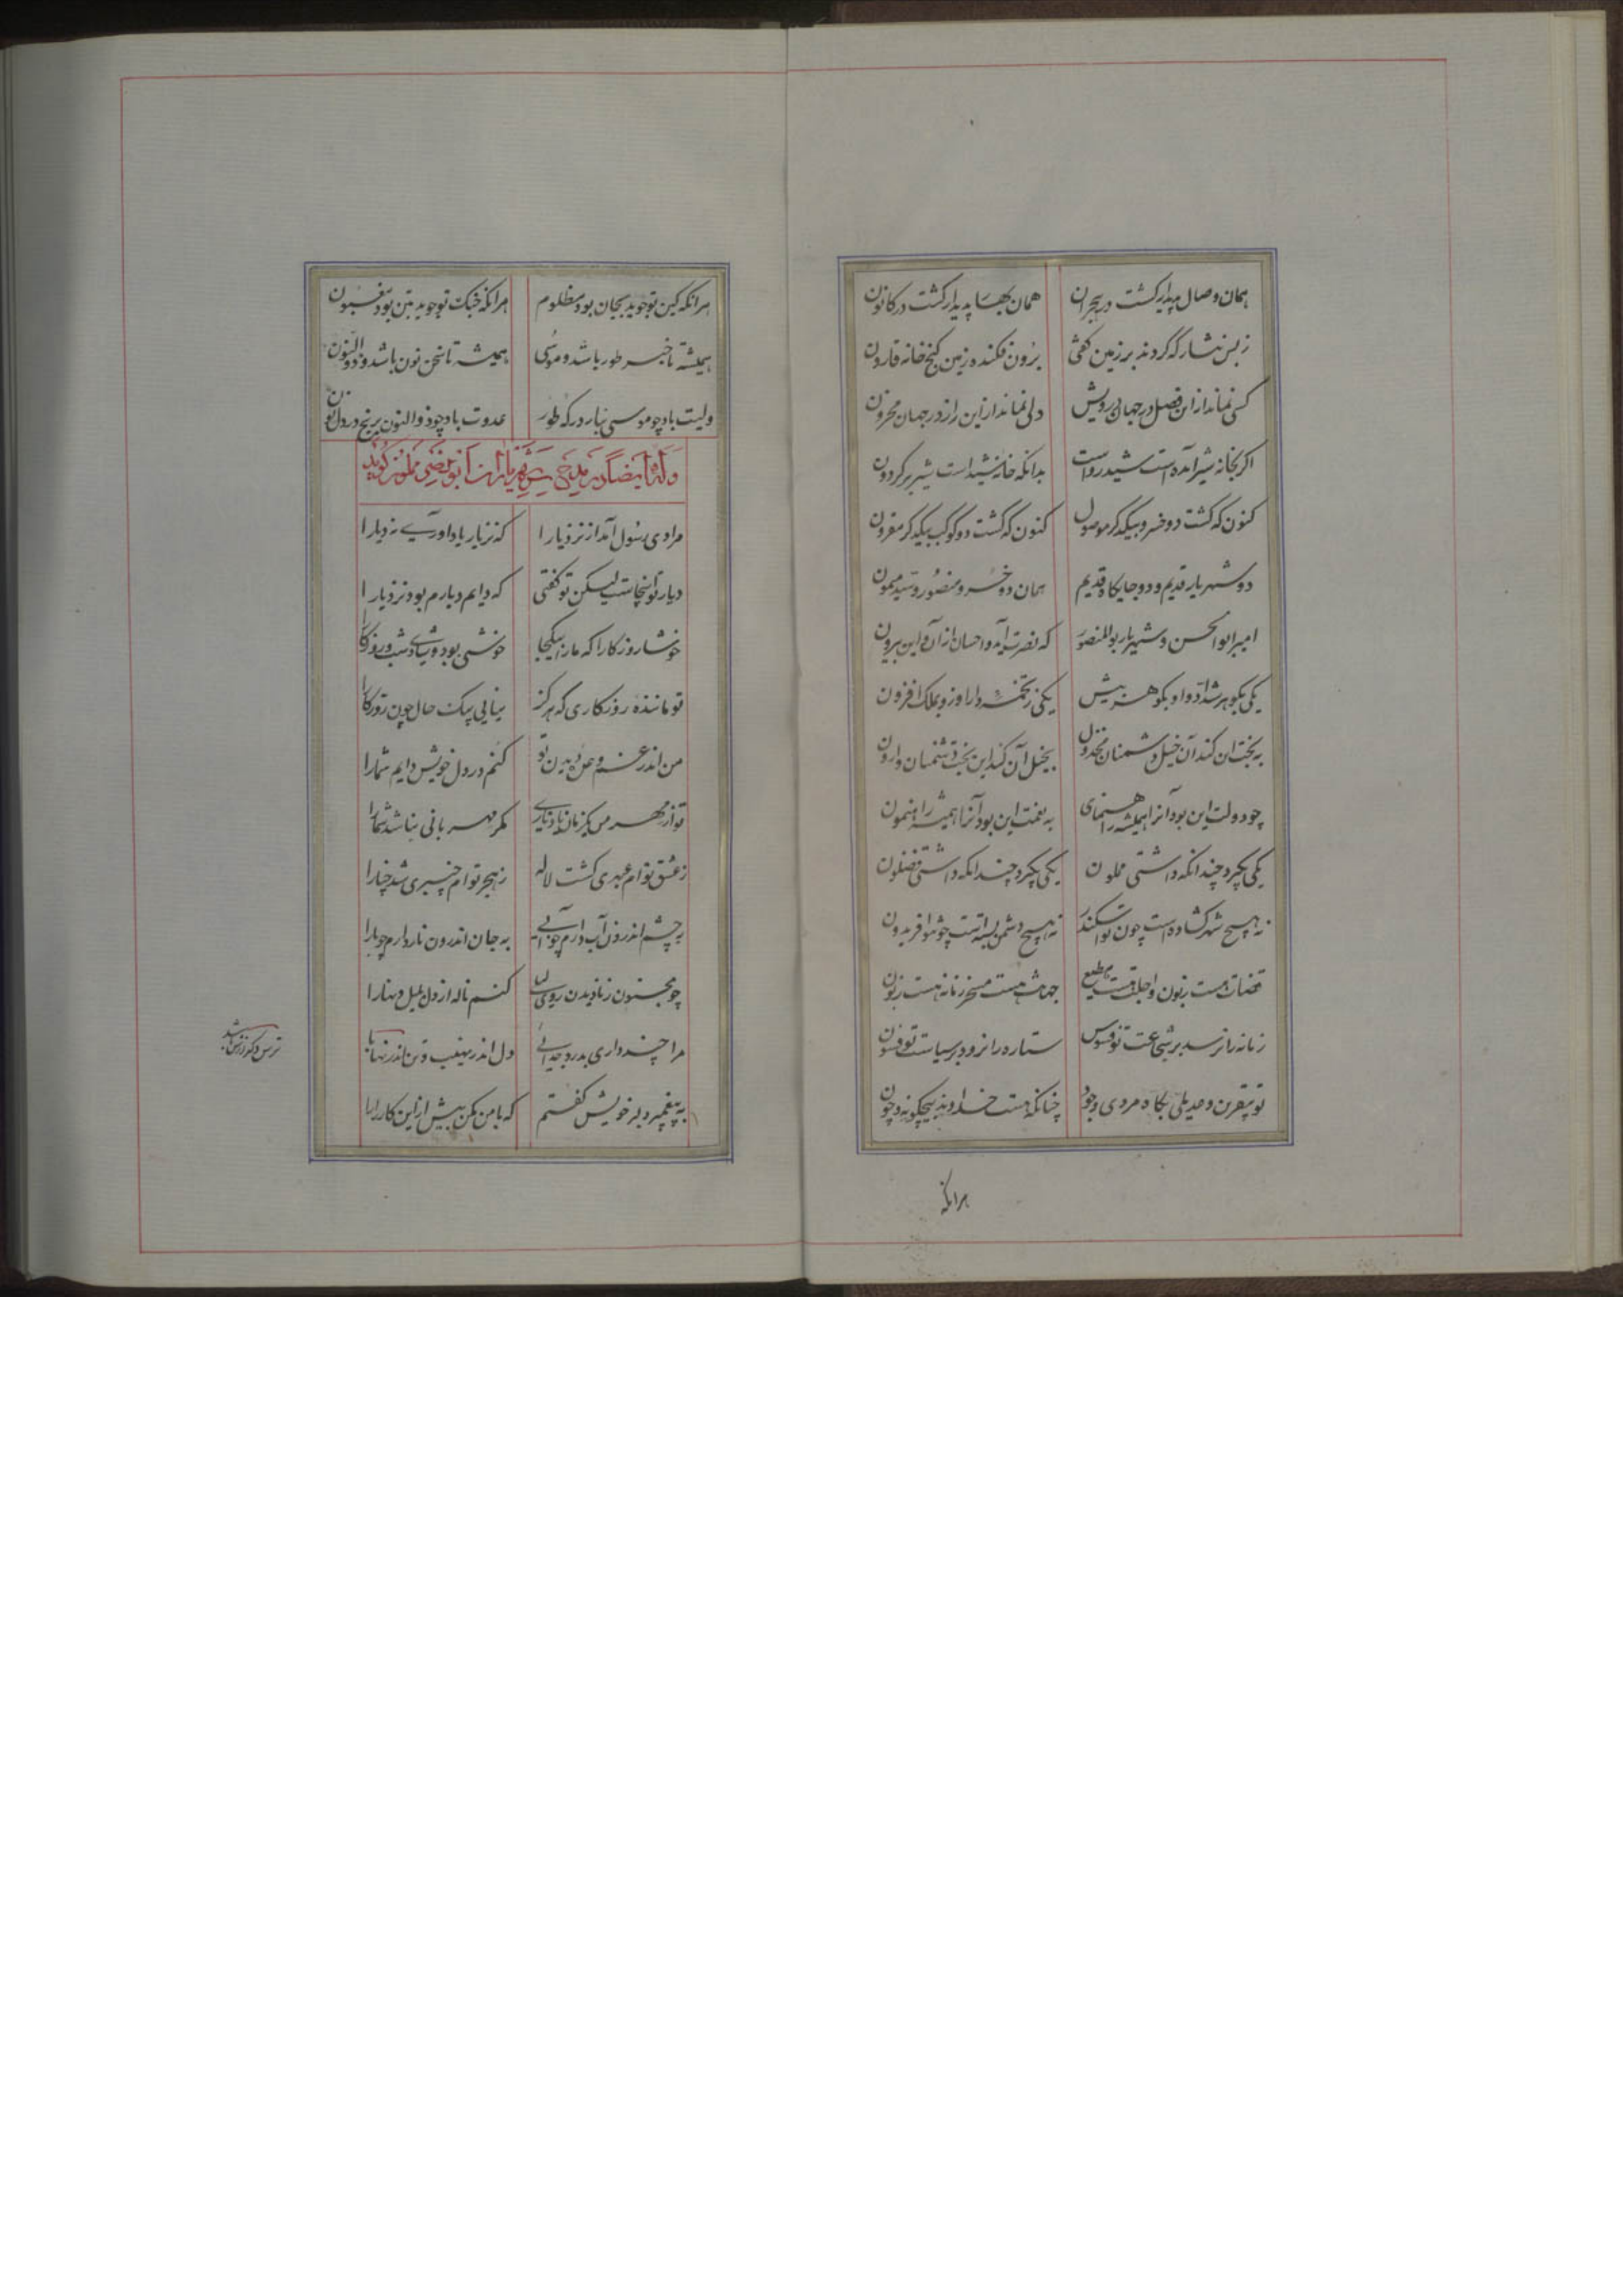 همان وصال پدیدار گشت در هجران همان بهار پدیدار گشت در کانون
ز بس نثار که کردند بر زمین گفتی برون فکنده زمین گنج خانه قارون
کسی نماند از این فصل در جهان درویش دلی نماند از این راز در جهان محزون
اگر بخانه شیر آمده است شید رواست بدانکه خانه شید است شیر بر گردون
کنون که گشت دو خسرو بیکدگر موصول کنون که گشت دو کوکب بیکدگر مقرون
دو شهریار قدیم و دو جایگاه قدیم همان دو خسرو منصور و سید میمون
امیر ابوالحسن و شهریار بوالمنصور که نصرت آمد و احسان از آن و این بیرون
یکی بگوهر شداد و او بگوهر بیش یکی ز تخمه دارا و زو بملک افزون
به بخت ان کند آن خیل دشمنان مخذول بخیل آن کند این بخت دشمنان وارون
چو دولت این بود آنرا همیشه راهنمای به نعمت این بود آنرا همیشه راهنمون
یکی بگیرد چندانکه داشتی مملون یکی بگیرد چندانکه داشتی فضلون
نه هیچ شهر گشاده است چون تو اسکندر نه هیچ دشمن بسته است چو تو افریدون
قضات هست زبون و اجلت هست مطیع جهانت هست مسخر زمانه هست زبون
زمانه را نرسد بر شجاعت تو فسوس ستاره را نرود بر سیاست تو فسون
تو بیقرن و عدیلی بگاه مردی وجود چنانکه هست خداوند بیچگونه و چون
هرانکه
هرانکه کین تو جوید بجان بود مظلوم هرانکه جنگ تو جوید بتن بود مغبون
همیشه تا خبر طور باشد و موسی همیشه تا سخن نون باشد و ذوالنون
ولیت باد چو موسی نیار درگه طور عدوت باد چو ذوالنون برنج در دل نون
وله ایضا در مدح شهریار ابونصر مملان گوید
مرا دی رسول آمد از نزد یارا که نز یار یاد آوری نه دیارا
دیار تو اینجاست لیکن تو گفتی که دایم دیارم بود نزد یارا
خوشا روزگارا که ما را بیکجا خوشی بود و شادی شب و روزگارا
تو ماننده روزگاری که هرگز نیابی بیک حال چون روزگارا
من اندر غم و حال دیدن تو کنم در دل خویش دایم شمارا
تو از مهر من یکزمان یاد ناری مگر مهربانی نباشد شمارا
ز عشق توام عبهری گشت لاله ز هجر توام خیری شد چنارا
به چشم اندرون آب دارم چو آبی به جان اندرون نار دارم چو نارا
چو مجنون ز نادیدن روی لیلی کنم ناله از دل بلیل و نهارا
مرا چند داری بدرد جدائی دل اندر نهیب و تن اندر نهارا
ترس و گدازش باشد
به پیغمبر دلبر خویش گفتم که با من مکن بیش از این کار رایا